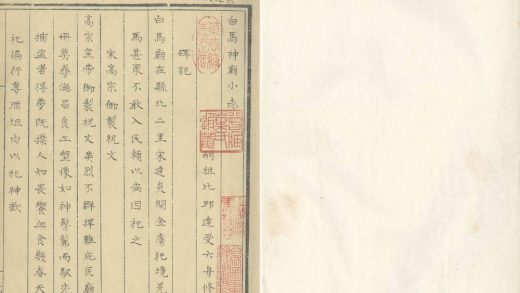 白馬神廟小志
嗣祖比邱達受六舟修
碑記
白馬廟在縣北二里宋建炎間金虜犯境見
馬甚衆不敢入民賴以安因祀之
宋高宗御製祝文
高宗皇帝御製祝文英烈不群捍難庇民廟
恭海昌良工塑像如神鬃鬣而馭步
捕盜者得帶既擾人知畏饗血食幾春天
祀備行尊酒俎肉以祀神歆